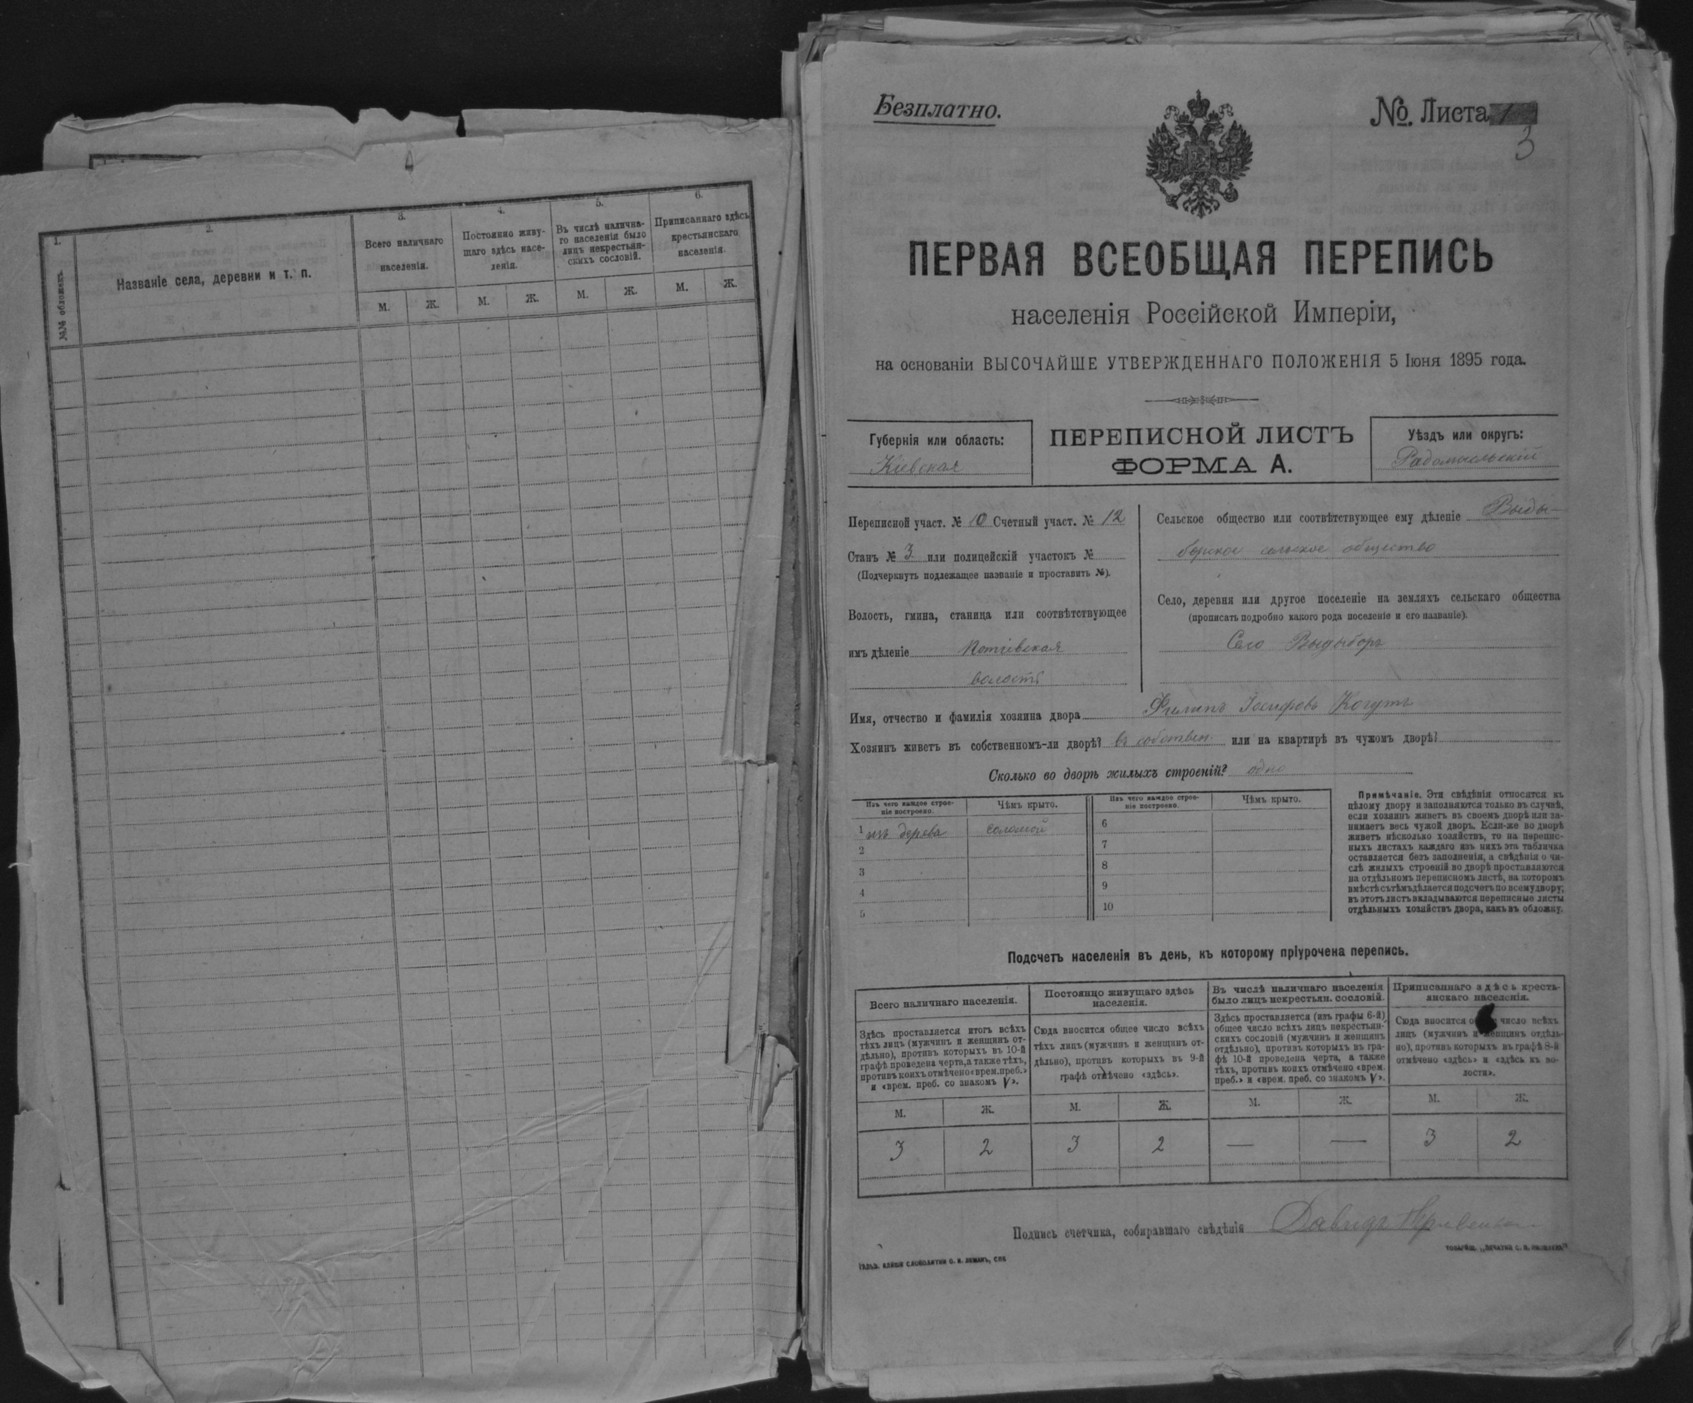 1.
2.
3.
4.
5.
6.
№№ обложек.
Названіе села, деревни и т. п.
Всего наличнаго
населенія.
Постоянно живу-
щаго здѣсь насе-
ленія.
Въ числѣ налична-
го населенія было
лицъ некрестьян-
скихъ сословій.
Приписаннаго здѣсь
крестьянскаго
населенія.
М. Ж. М. Ж. М. Ж. М. Ж.
Безплатно.
№. Листа
3
ПЕРВАЯ ВСЕОБЩАЯ ПЕРЕПИСЬ
населенія Россійской Имперіи,
на основаніи ВЫСОЧАЙШЕ УТВЕРЖДЕННАГО ПОЛОЖЕНІЯ 5 Іюня 1895 года.
Губернія или область:
Кіевская
ПЕРЕПИСНОЙ ЛИСТЪ
ФОРМА А.
Уѣздъ или округъ:
Радомысльскій
Переписной участ. № 10 Счетный участ. № 12
Станъ № 3 или полицейскій участокъ №
(Подчеркнуть подлежащее названіе и проставить №).
Волость, гмина, станица или соотвѣтствующее
имъ дѣленіе Потіевская
волость
Сельское общество или соотвѣтствующее ему дѣленіе Выды-
борское сельское общество
Село, деревня или другое поселеніе на земляхъ сельскаго общества
(прописать подробно какого рода поселеніе и его названіе).
Село Выдыборъ
Имя, отчество и фамилія хозяина двора Филипъ Іосифовъ Когутъ
Хозяинъ живетъ въ собственномъ-ли дворѣ? въ собствен. или на квартирѣ въ чужомъ дворѣ?
Сколько во дворѣ жилыхъ строеній? одно
Изъ чего каждое строе-
ніе построено.
Чѣмъ крыто.
Изъ чего каждое строе-
ніе построено.
Чѣмъ крыто.
1 изъ дерева соломой
2
3
4
5
6
7
8
9
10
Примѣчаніе. Эти свѣдѣнія относятся къ
цѣлому двору и заполняются только въ случаѣ,
если хозяинъ живетъ въ своемъ дворѣ или за-
нимаетъ весь чужой дворъ. Если-же во дворѣ
живетъ нѣсколько хозяйствъ, то на перепис-
ныхъ листахъ каждаго изъ нихъ эта табличка
оставляется безъ заполненія, а свѣдѣнія о чи-
слѣ жилыхъ строеній во дворѣ проставляются
на отдѣльномъ переписномъ листѣ, на которомъ
вмѣстѣ съ тѣмъ дѣлается подсчетъ по всему двору;
въ этотъ листъ вкладываются переписные листы
отдѣльныхъ хозяйствъ двора, какъ въ обложку.
Подсчетъ населенія въ день, къ которому пріурочена перепись.
Всего наличнаго населенія.
Здѣсь проставляется итогъ всѣхъ
тѣхъ лицъ (мужчинъ и женщинъ от-
дѣльно), противъ которыхъ въ 10-й
графѣ проведена черта, а также тѣхъ,
противъ коихъ отмѣчено «врем. преб.»
и «врем. преб. со знакомъ V».
Постоянно живущаго здѣсь
населенія.
Сюда вносится общее число всѣхъ
тѣхъ лицъ (мужчинъ и женщинъ от-
дѣльно), противъ которыхъ въ 9-й
графѣ отмѣчено «здѣсь».
Въ числѣ наличнаго населенія
было лицъ некрестьян. сословій.
Здѣсь проставляется (изъ графы 6-й)
общее число всѣхъ лицъ некрестьян-
скихъ сословій (мужчинъ и женщинъ
отдѣльно), противъ которыхъ въ гра-
фѣ 10-й проведена черта, а также
тѣхъ, противъ коихъ отмѣчено «врем.
преб.» и «врем. преб. со знакомъ V».
Приписаннаго здѣсь кресть-
янскаго населенія.
Сюда вносится общее число всѣхъ
лицъ (мужчинъ и женщинъ отдѣль-
но), противъ которыхъ въ графѣ 8-й
отмѣчено «здѣсь» и «здѣсь къ во-
лости».
М. Ж. М. Ж. М. Ж. М. Ж.
3 2 3 2 — — 3 2
Подпись счетчика, собиравшаго свѣдѣнія Давидъ